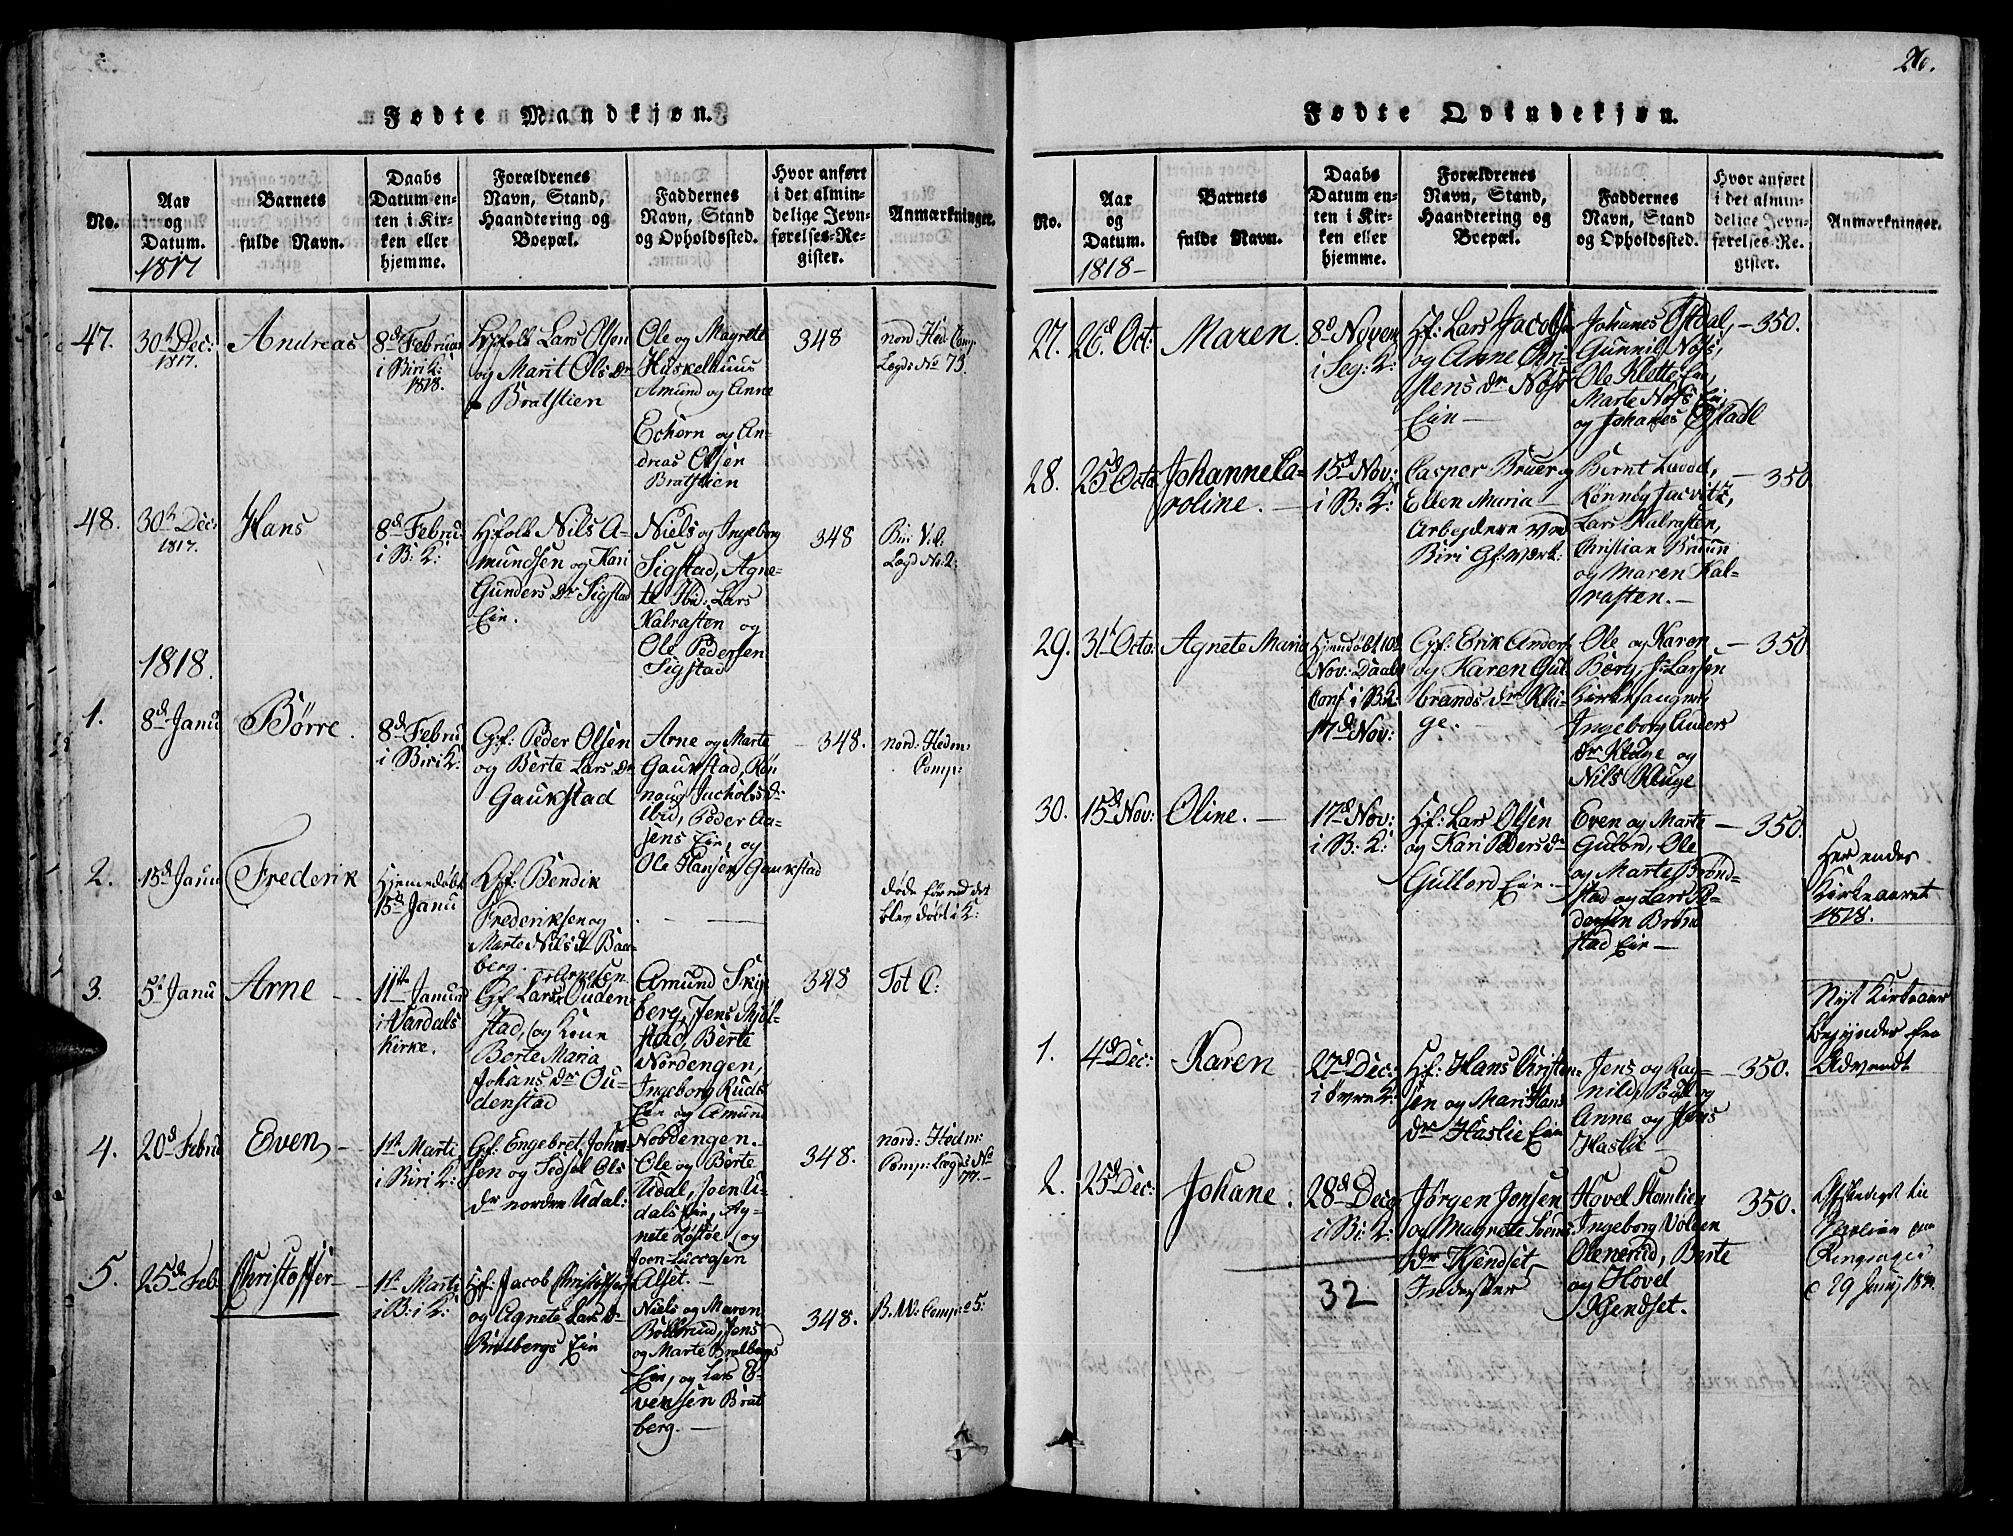 26.
Fødte Mandkjøn.
No.
Aar
og
Datum.
1817
Barnets
fulde Navn.
Daabs
Datum en-
ten i Kir-
ken eller
hjemme.
Forældrenes
Navn, Stand,
Haandtering og
Boepæl.
Faddernes
Navn, Stand
og Opholdssted.
Hvor anført
i det almin-
delige Jevn-
førelses-Re-
gister.
Anmærkninger.
47.
30te Dec:
1817.
Andreas
8de Februar
i Biri K:
1818.
Lars Olsen
og Marit Ols dr
Bratstien
Ole og Magrete
Huskelhuus
Amund og Anne
Echern og An-
dreas Olsen
Bratstien
348
nord Hed: Comp
Legd: No 73.
48.
30te Dec:
1817.
Hans
8de Febru
i B: K:
Hfolk Nils A-
mundsen og Kari
Gunders dr Sigstad
Eie.
Niels og Ingeborg
Sigstad, Agne-
te Ibid: Lars
Kalrasten og
Ole Pedersen
Sigstad
348
Legd No: 2:
1818.
1.
8de Janu
Børre.
8de Febru
i Biri K:
Gf: Peder Olsen
og Berte Lars dr
Gaukstad
Arne og Marte
Gaukstad, Røn
Ibid, Peder Aa-
sens Eie, og
Ole Hansen Gaukstad
348.
nord: Hedm:
Comp:
2.
15de Janu
Frederik
Hjemedøbt
15de Janu
Gf: Bendik
Frederiksen og
Marte Nils dr Baa-
berg.
døde førend det
blev døbt i K:
3.
5te Janu
Arne
11te Januar
i Vardals
Kirke.
Torkelsen
Gf Lars Ouden-
stad, og Kone
Berte Maria
Johans dr Ou-
denstad
Amund Sky-
berg, Jens Mjøl-
stad, Berte
Nordengen,
Ingeborg Ruds
Eie og Amund
Nordengen.
348
Tot C:
4.
20de Febru
Even
1te Marti
i Biri K:
Gf: Engebret John-
sen og Sidsel Ols
dr nordre Udal:
Ole og Berte
Udal, Joen U-
dals Eie, Ag-
nete Løstøe og
Joen Luccasen
Alset.
348.
nord: Hedm:
Comp: Legds No
77.
5.
25de Feb
Christoffer
1te Marti
i B: K:
Gf: Jacob Christoffers
og Agnete Lars dr
Bratbergs Eie
Niels og Maren
Bøllerud, Jens
og Marte Bratbergs
Eie, og Lars E-
vensen Brat
berg.
348.
B. W: Comp: 5:
Fødte Qvindekjøn.
No.
Aar
og
Datum.
1818
Barnets
fulde Navn.
Daabs
Datum en-
ten i Kir-
ken eller
hjemme.
Forældrenes
Navn, Stand,
Haandtering og
Boepæl.
Faddernes
Navn, Stand
og Opholdssted.
Hvor anført
i det almin-
delige Jevn-
førelses-Re-
gister.
Anmærkninger.
27.
26de Oct:
Maren.
8de Novem
i Seg: K:
Hf: Lars Jacobs
og Anne Chri
stens dr Næss
Eie
Johanes Ø
Gunnil Næss,
Ole Klette Eie,
Marte Næss Eie,
og Johanes
350.
28.
25de Octo
Johanne Ca-
roline.
15de Nov:
i B: K:
Casper Bruer og
Ellen Maria
Arbejdere ved
Biri Gl: Værk:
Bernt
Rønnøg
Lars Kalrasten,
Christian Bruun
og Maren Kal-
rasten.
350
29.
31te Octo:
Agnete Maria
Hjemdøbt 10de
Nov: Daabs
Conf i B: K:
17de Nov:
Gf: Erik Anders
og Karen Gul
brands dr Klu-
ge.
Ole og Karen
Berg, Larsen
Kirkesanger
Ingeborg Anders
dr Kluge og
Nils Kluge
350
30.
15de Nov:
Oline.
17de Nov:
i B: K:
Hf: Lars Olsen
og Kari Peders dr
Gullord Eie.
Even og Marte
Gulord, Ole
og Marte Brønd-
stad og Lars Pe-
dersen Brønd
stad Eie
350.
Her endes
Kirkeaaret
1818.
Nyt Kirkeaar
begynder fra
Advendt
1.
4de Dec:
Karen
27de Dec:
Hf: Hans Christen-
sen og Mari Hans
dr Haslie Eie
Jens og Rag-
nild, og
Anne og Jens
Haslie
350.
2.
25de Dec:
Johane.
28de Dec:
i Bi: K:
Jørgen Jonsen
og Magrete Svens
dr Kjendset
Inderster
Hovel Stomlien
Ingeborg Volden
Olenerud, Berte
og Hovel
Kjendset.
350.
32